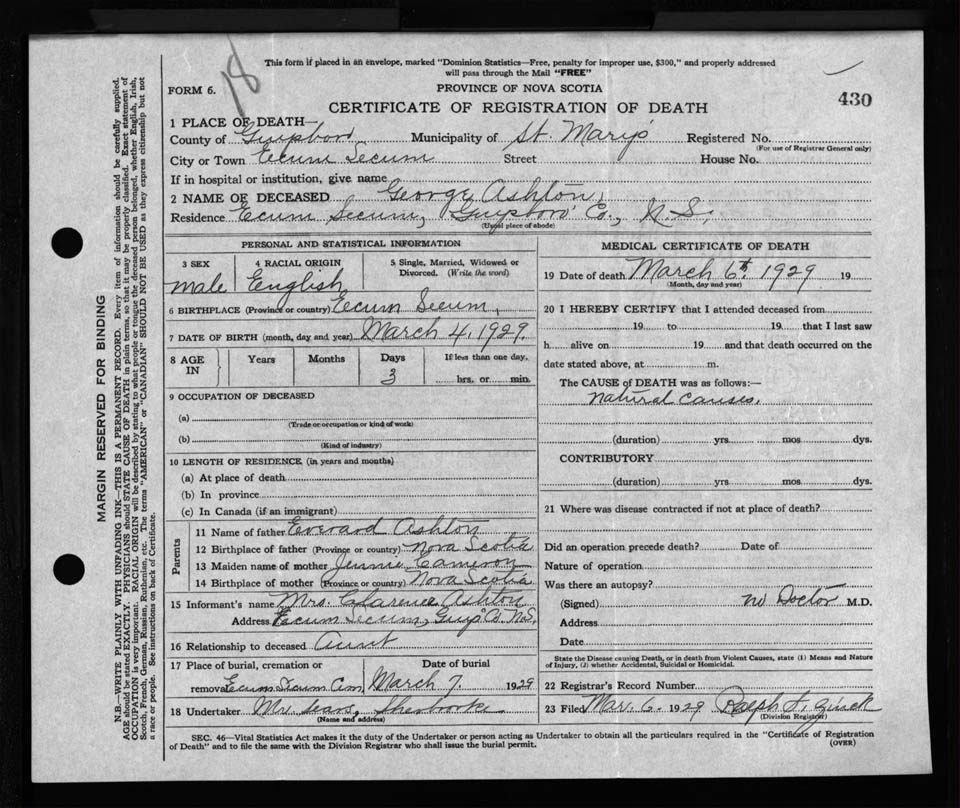 18
This form if placed in an envelope, marked "Dominion Statistics—Free, penalty for improper use, $300," and properly addressed
will pass through the Mail "FREE"
FORM 6.
PROVINCE OF NOVA SCOTIA
430
CERTIFICATE OF REGISTRATION OF DEATH
1 PLACE OF DEATH—
County of Guysboro Municipality of St. Mary's Registered No.
(For use of Registrar General only)
City or Town Ecum Secum Street House No.
If in hospital or institution, give name
2 NAME OF DECEASED George Ashton
Residence Ecum Secum, Guysboro Co., N.S.
(Usual place of abode)
PERSONAL AND STATISTICAL INFORMATION
3 SEX 4 RACIAL ORIGIN 5 Single, Married, Widowed or Divorced. (Write the word)
male English
6 BIRTHPLACE (Province or country) Ecum Secum,
7 DATE OF BIRTH (month, day and year) March 4, 1929.
8 AGE IN Years Months Days If less than one day,
3 hrs. or min.
9 OCCUPATION OF DECEASED
(a)
(Trade or occupation or kind of work)
(b)
(Kind of industry)
10 LENGTH OF RESIDENCE (in years and months)
(a) At place of death
(b) In province
(c) In Canada (if an immigrant)
Parents
11 Name of father Everard Ashton
12 Birthplace of father (Province or country) Nova Scotia
13 Maiden name of mother Jennie Cameron
14 Birthplace of mother (Province or country) Nova Scotia
15 Informant's name Mrs. Clarence Ashton
Address Ecum Secum, Guy. Co. N.S.
16 Relationship to deceased Aunt
17 Place of burial, cremation or Date of burial
removal Ecum Secum Cem March 7 1929
18 Undertaker Mr Sears, Sherbrooke
(Name and address)
MEDICAL CERTIFICATE OF DEATH
19 Date of death March 6th, 1929 19
(Month, day and year)
20 I HEREBY CERTIFY that I attended deceased from
19 to 19 that I last saw
h alive on 19 and that death occurred on the
date stated above, at m.
The CAUSE of DEATH was as follows:—
Natural causes.
(duration) yrs mos dys.
CONTRIBUTORY
(duration) yrs. mos. dys.
21 Where was disease contracted if not at place of death?
Did an operation precede death? Date of
Nature of operation
Was there an autopsy?
(Signed) no Doctor M.D.
Address
Date
State the Disease causing Death, or in death from Violent Causes, state (1) Means and Nature
of Injury, (2) whether Accidental, Suicidal or Homicidal.
22 Registrar's Record Number
23 Filed Mar. 6. 1929 Ralph
(Division Registrar)
SEC. 46—Vital Statistics Act makes it the duty of the Undertaker or person acting as Undertaker to obtain all the particulars required in the "Certificate of Registration
of Death" and to file the same with the Division Registrar who shall issue the burial permit.
(OVER)
MARGIN RESERVED FOR BINDING
N.B.—WRITE PLAINLY WITH UNFADING INK—THIS IS A PERMANENT RECORD. Every item of information should be carefully supplied.
AGE should be stated EXACTLY. PHYSICIANS should STATE CAUSE OF DEATH in plain terms, so that it may be properly classified. Exact statement of
OCCUPATION is very important. RACIAL ORIGIN will be described by stating to what people or tongue the deceased person belonged, whether English, Irish,
Scotch, French, German, Russian, Ruthenian, etc. The terms "AMERICAN" or "CANADIAN" SHOULD NOT BE USED as they express citizenship but not
a race or people. See instructions on back of Certificate.